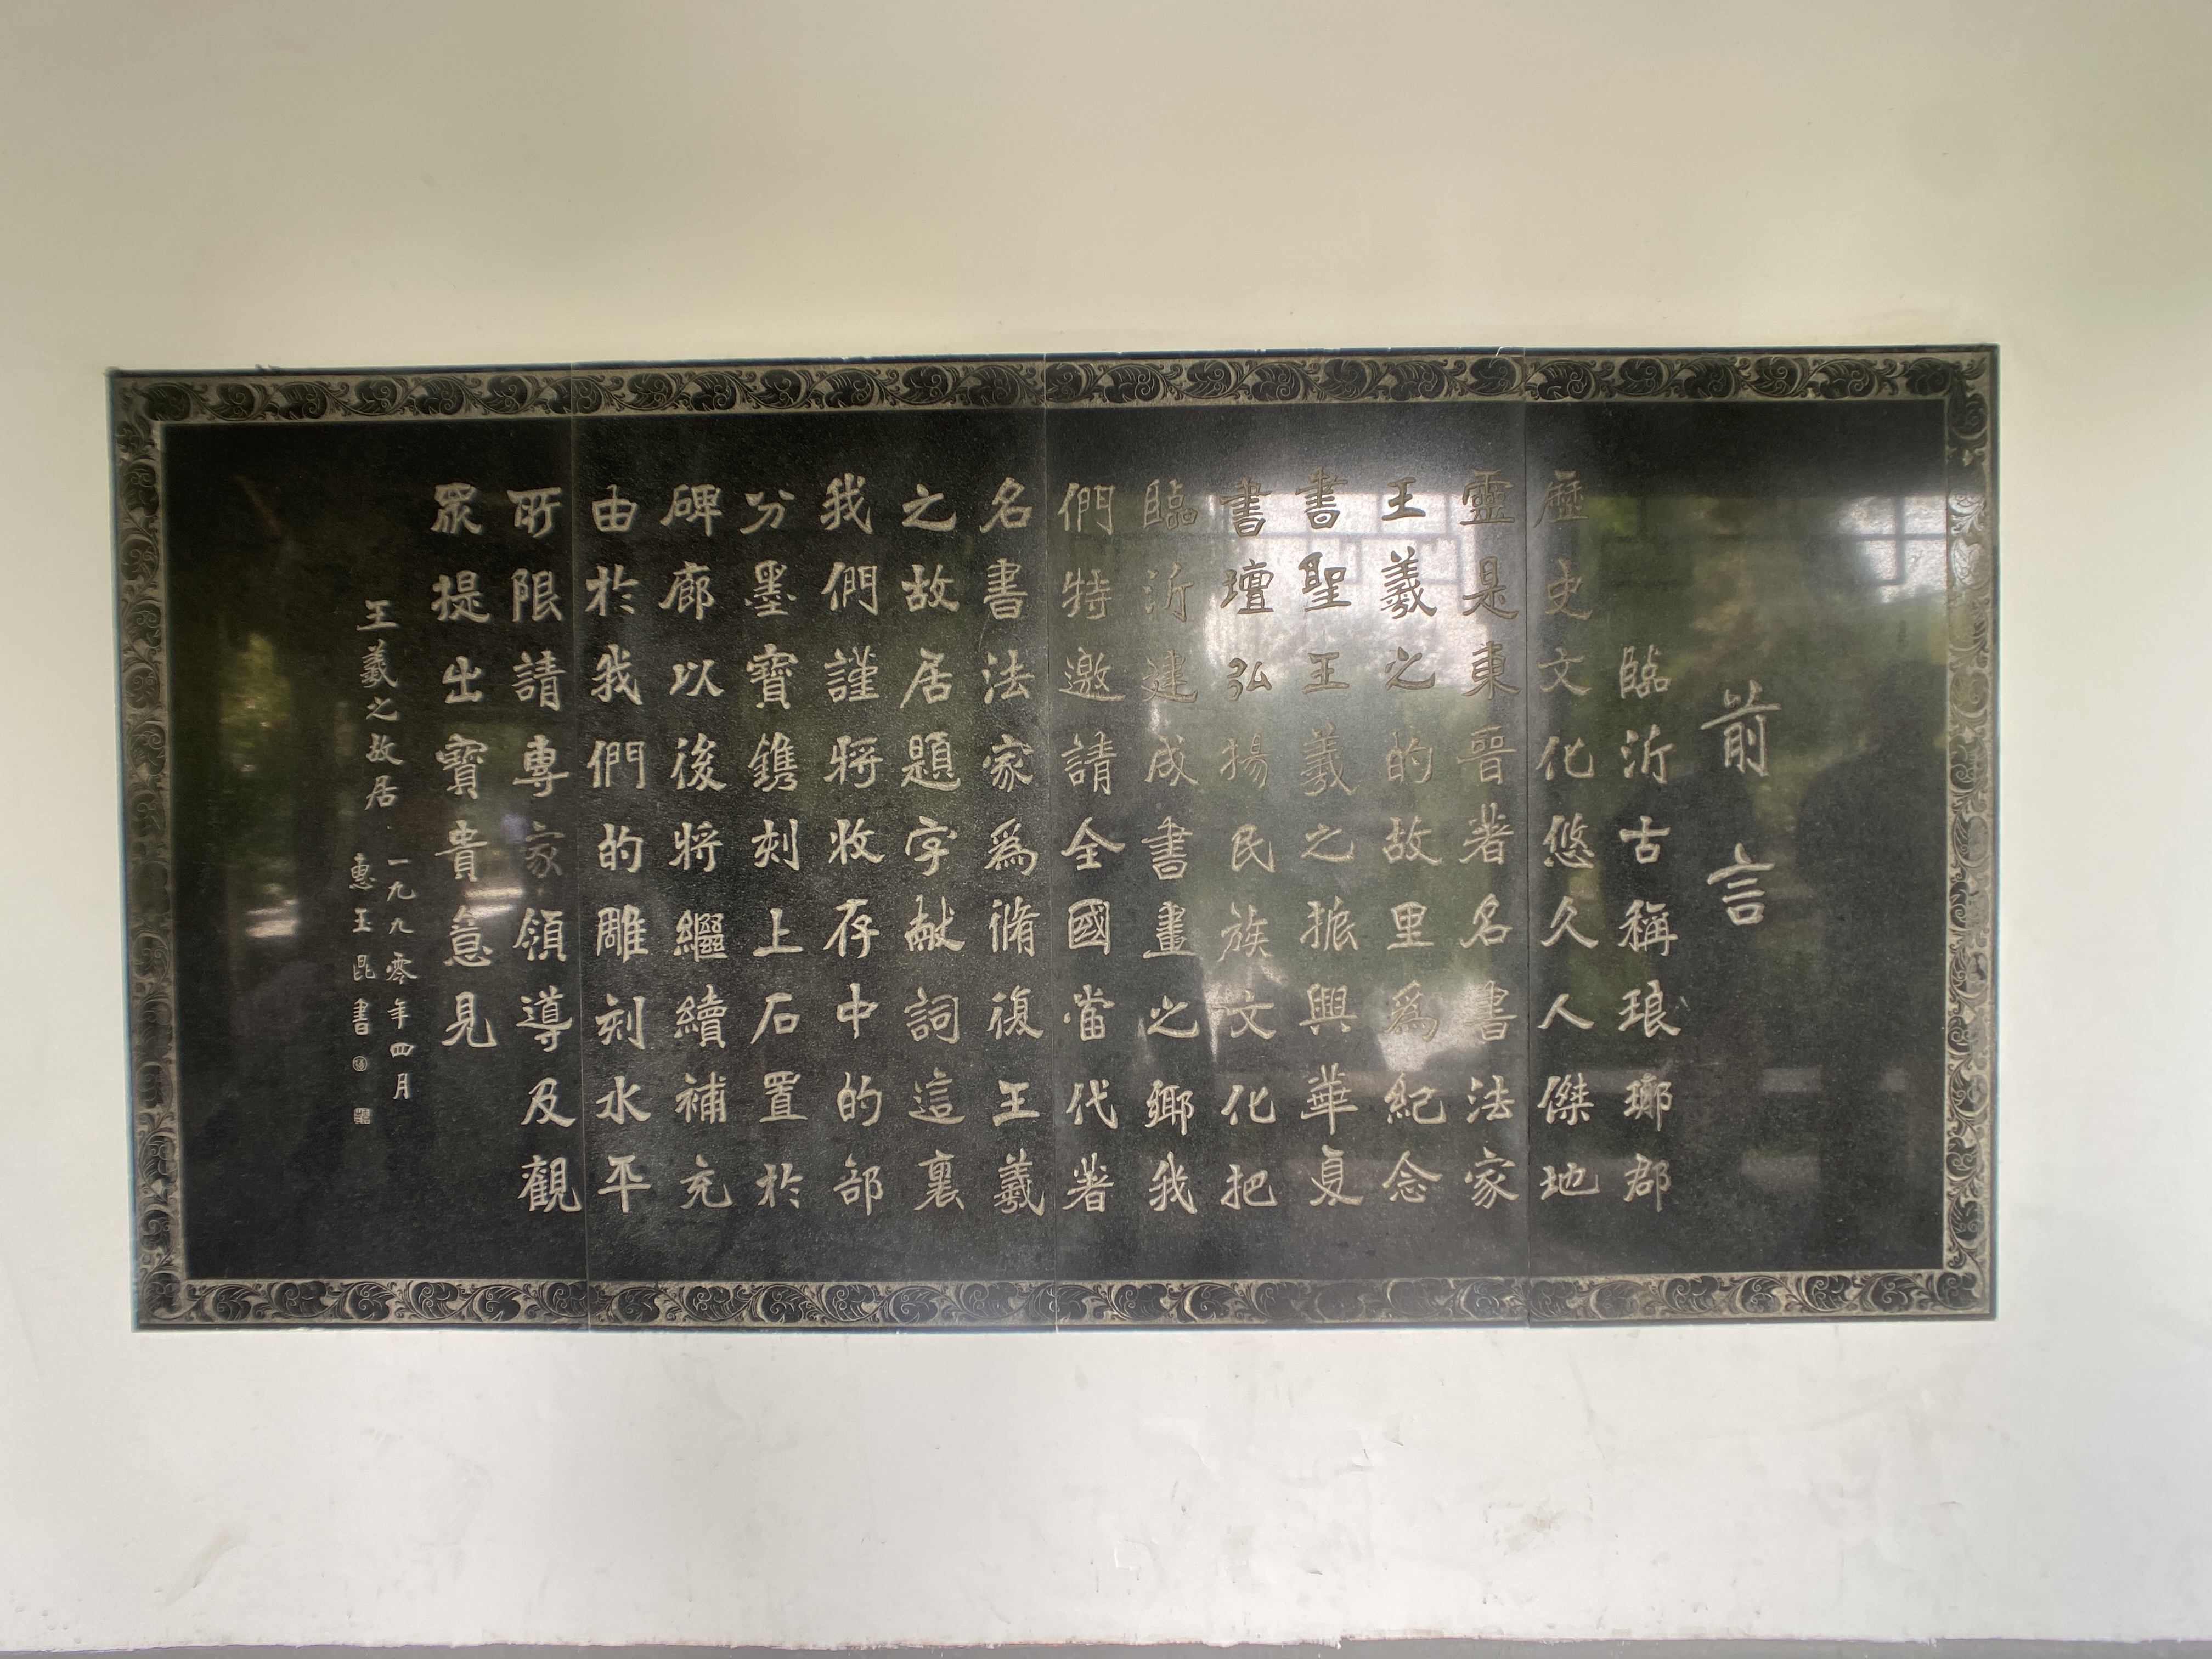 前言
臨沂古稱琅琊郡
歷史文化悠久人傑地
靈是東晉著名書法家
王羲之的故里爲紀念
書聖王羲之振興華夏
書壇弘揚民族文化把
臨沂建成書畫之鄉我
們特邀請全國當代著
名書法家爲脩復王羲
之故居題字献詞這裏
我們謹將收存中的部
分墨寶鐫刻上石置於
碑廊以後將繼續補充
由於我們的雕刻水平
所限請專家領導及觀
眾提出寳貴意見
王羲之故居 一九九零年四月
惠玉昆書